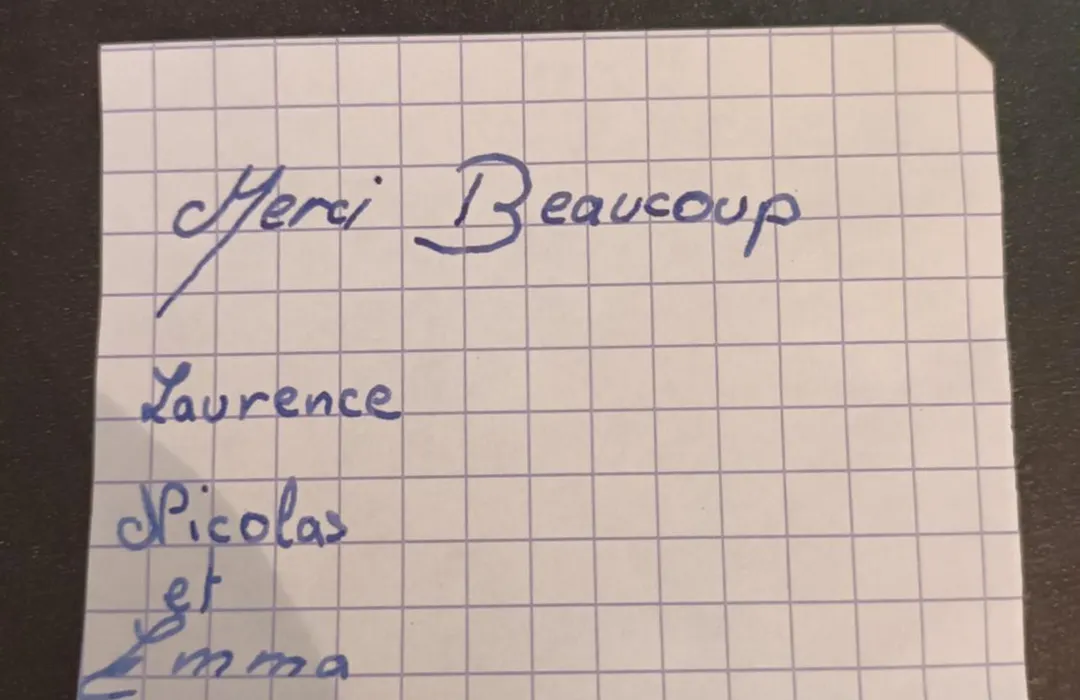 Merci Beaucoup
Laurence
Nicolas
et
Emma